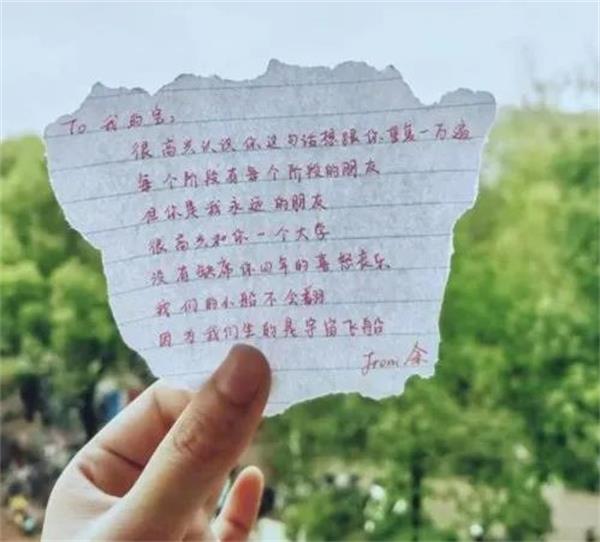 To 我的宝,
很高兴认识你这句话想跟你重复一万遍
每个阶段有每个阶段的朋友
但你是我永远的朋友
很高兴和你一个大学
没有缺席你四年的喜怒哀乐
我们的小船不会翻
因为我们坐的是宇宙飞船
from 余